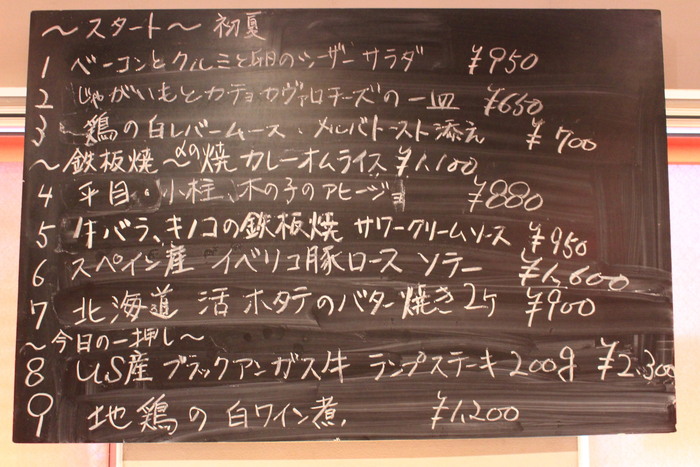 ～スタート～ 初夏
1 ベーコンとクルミと卵のシーザーサラダ ¥950
2 じゃがいもとカチョカヴァロチーズの一皿 ¥650
3 鶏の白レバームース、メルバトースト添え ¥700
～鉄板焼～ の焼カレーオムライス ¥1,100
4 平目、小柱、木の子のアヒージョ ¥880
5 牛バラ、キノコの鉄板焼 サワークリームソース ¥950
6 スペイン産 イベリコ豚ロース ソテー ¥1,600
7 北海道 活 ホタテのバター焼き 2ケ ¥900
～今日の一押し～
8 U.S産 ブラックアンガス牛 ランプステーキ 200g ¥2,300
9 地鶏の白ワイン煮、 ¥1,200